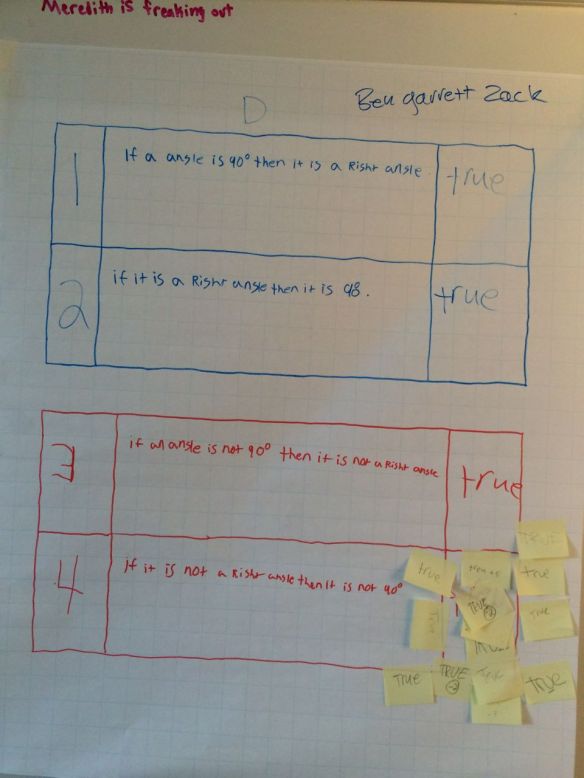 Meredith is freaking out
D
Ben garrett Zack
1 If a angle is 90° then it is a Right angle. true
2 if it is a Right angle then it is 90. true
3 if an angle is not 90° then it is not a Right angle true
4 if it is not a Right angle then it is not 90°
TRUE
true
true
TRUE
True
True
True
TRUE
True
true